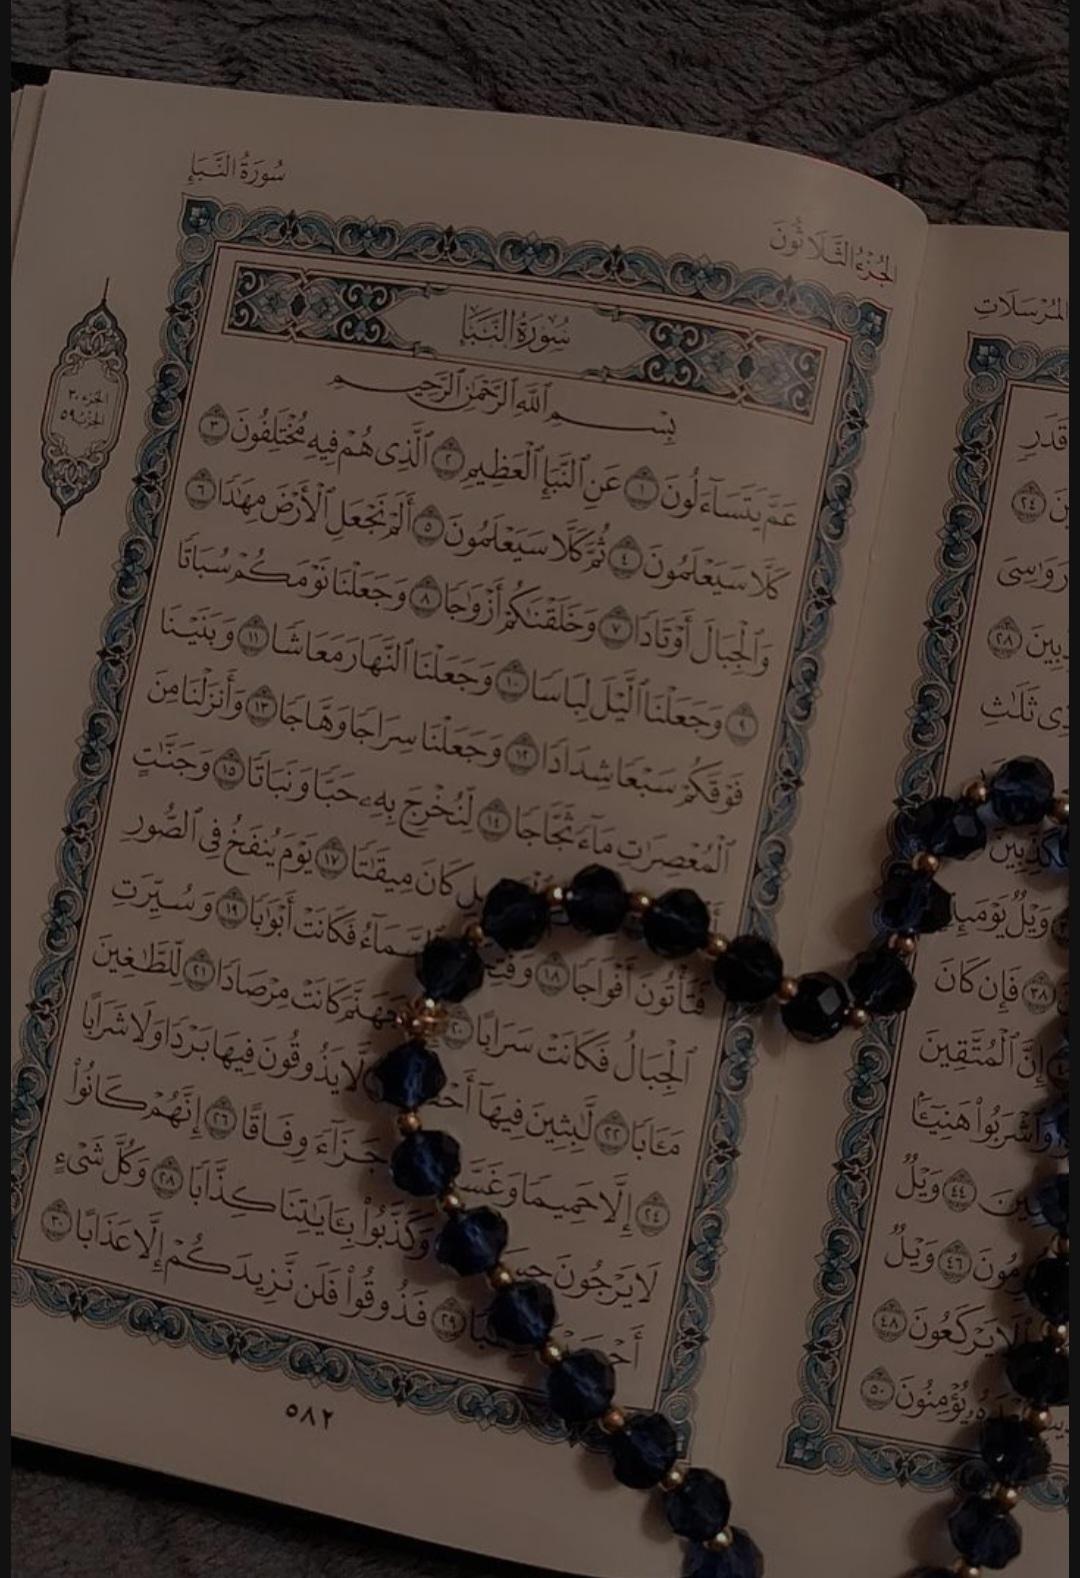 سُورَةُ النَّبَإِ
الجُزْءُ الثَّلَاثُونَ
الجزء ٣٠
الحزب ٥٩
سُورَةُ النَّبَإِ
بِسْمِ ٱللَّهِ ٱلرَّحْمَٰنِ ٱلرَّحِيمِ
عَمَّ يَتَسَآءَلُونَ ١ عَنِ ٱلنَّبَإِ ٱلْعَظِيمِ ٢ ٱلَّذِى هُمْ فِيهِ مُخْتَلِفُونَ ٣
كَلَّا سَيَعْلَمُونَ ٤ ثُمَّ كَلَّا سَيَعْلَمُونَ ٥ أَلَمْ نَجْعَلِ ٱلْأَرْضَ مِهَٰدًا ٦
وَٱلْجِبَالَ أَوْتَادًا ٧ وَخَلَقْنَٰكُمْ أَزْوَٰجًا ٨ وَجَعَلْنَا نَوْمَكُمْ سُبَاتًا
٩ وَجَعَلْنَا ٱلَّيْلَ لِبَاسًا ١٠ وَجَعَلْنَا ٱلنَّهَارَ مَعَاشًا ١١ وَبَنَيْنَا
فَوْقَكُمْ سَبْعًا شِدَادًا ١٢ وَجَعَلْنَا سِرَاجًا وَهَّاجًا ١٣ وَأَنزَلْنَا مِنَ
ٱلْمُعْصِرَٰتِ مَآءً ثَجَّاجًا ١٤ لِّنُخْرِجَ بِهِۦ حَبًّا وَنَبَاتًا ١٥ وَجَنَّٰتٍ
كَانَ مِيقَٰتًا ١٧ يَوْمَ يُنفَخُ فِى ٱلصُّورِ
فَتَأْتُونَ أَفْوَاجًا ١٨ فَكَانَتْ أَبْوَٰبًا ١٩ وَسُيِّرَتِ
ٱلْجِبَالُ فَكَانَتْ سَرَابًا ٢٠ كَانَتْ مِرْصَادًا ٢١ لِّلطَّٰغِينَ
مَـَٔابًا ٢٢ لَّٰبِثِينَ فِيهَآ لَّا يَذُوقُونَ فِيهَا بَرْدًا وَلَا شَرَابًا
٢٤ إِلَّا حَمِيمًا جَزَآءً وِفَاقًا ٢٦ إِنَّهُمْ كَانُوا۟
لَا يَرْجُونَ وَكَذَّبُوا۟ بِـَٔايَٰتِنَا كِذَّابًا ٢٨ وَكُلَّ شَىْءٍ
٢٩ فَذُوقُوا۟ فَلَن نَّزِيدَكُمْ إِلَّا عَذَابًا ٣٠
٥٨٢
المُرْسَلَاتِ
٢٤
رَوَٰسِىَ
٢٨
ثَلَٰثِ
وَيْلٌ
٣٨ فَإِن كَانَ
إِنَّ ٱلْمُتَّقِينَ
وَٱشْرَبُوا۟ هَنِيٓـًٔۢا
٤٤ وَيْلٌ
٤٦ وَيْلٌ
لَا يَرْكَعُونَ ٤٨
يُؤْمِنُونَ ٥٠